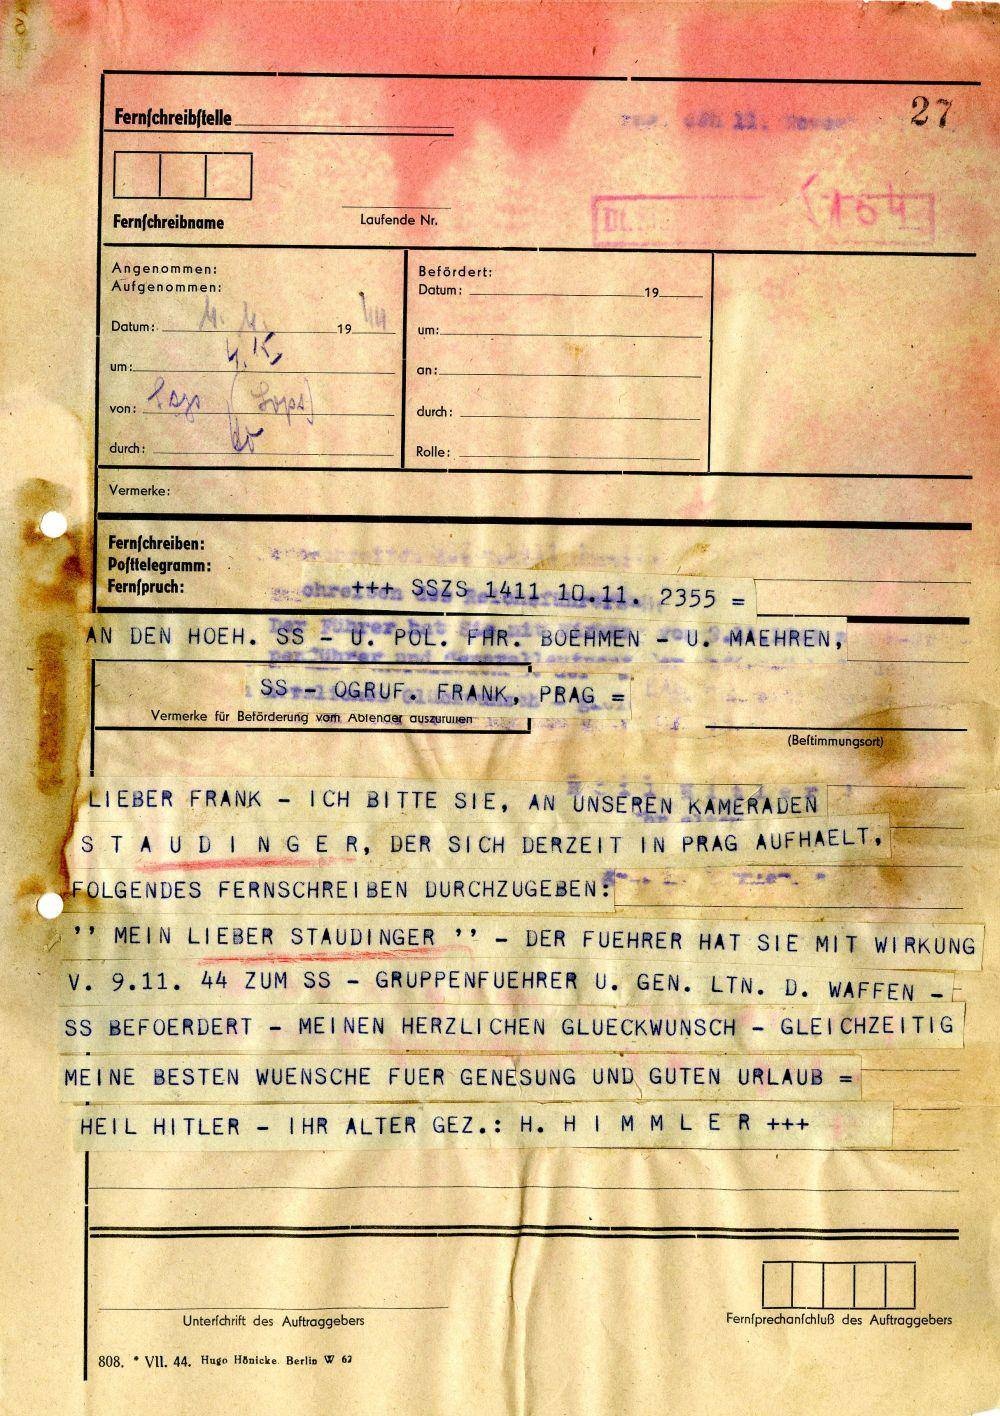 27
Fernschreibstelle
154
Fernschreibname
Laufende Nr.
Angenommen:
Aufgenommen:
Datum: 19 44
um:
von:
durch:
Befördert:
Datum: 19
um:
an:
durch:
Rolle:
Vermerke:
Fernschreiben:
Posttelegramm:
Fernspruch:
+++ SSZS 1411 10.11. 2355 =
AN DEN HOEH. SS - U. POL. FHR. BOEHMEN - U. MAEHREN,
SS - OGRUF. FRANK, PRAG =
Vermerke für Beförderung vom Absender auszufüllen
(Bestimmungsort)
LIEBER FRANK - ICH BITTE SIE, AN UNSEREN KAMERADEN
S T A U D I N G E R, DER SICH DERZEIT IN PRAG AUFHAELT,
FOLGENDES FERNSCHREIBEN DURCHZUGEBEN:
'' MEIN LIEBER STAUDINGER '' - DER FUEHRER HAT SIE MIT WIRKUNG
V. 9.11. 44 ZUM SS - GRUPPENFUEHRER U. GEN. LTN. D. WAFFEN -
SS BEFOERDERT - MEINEN HERZLICHEN GLUECKWUNSCH - GLEICHZEITIG
MEINE BESTEN WUENSCHE FUER GENESUNG UND GUTEN URLAUB =
HEIL HITLER - IHR ALTER GEZ.: H. H I M M L E R +++
Unterschrift des Auftraggebers
Fernsprechanschluß des Auftraggebers
808. * VII. 44. Hugo Hönicke. Berlin W 62